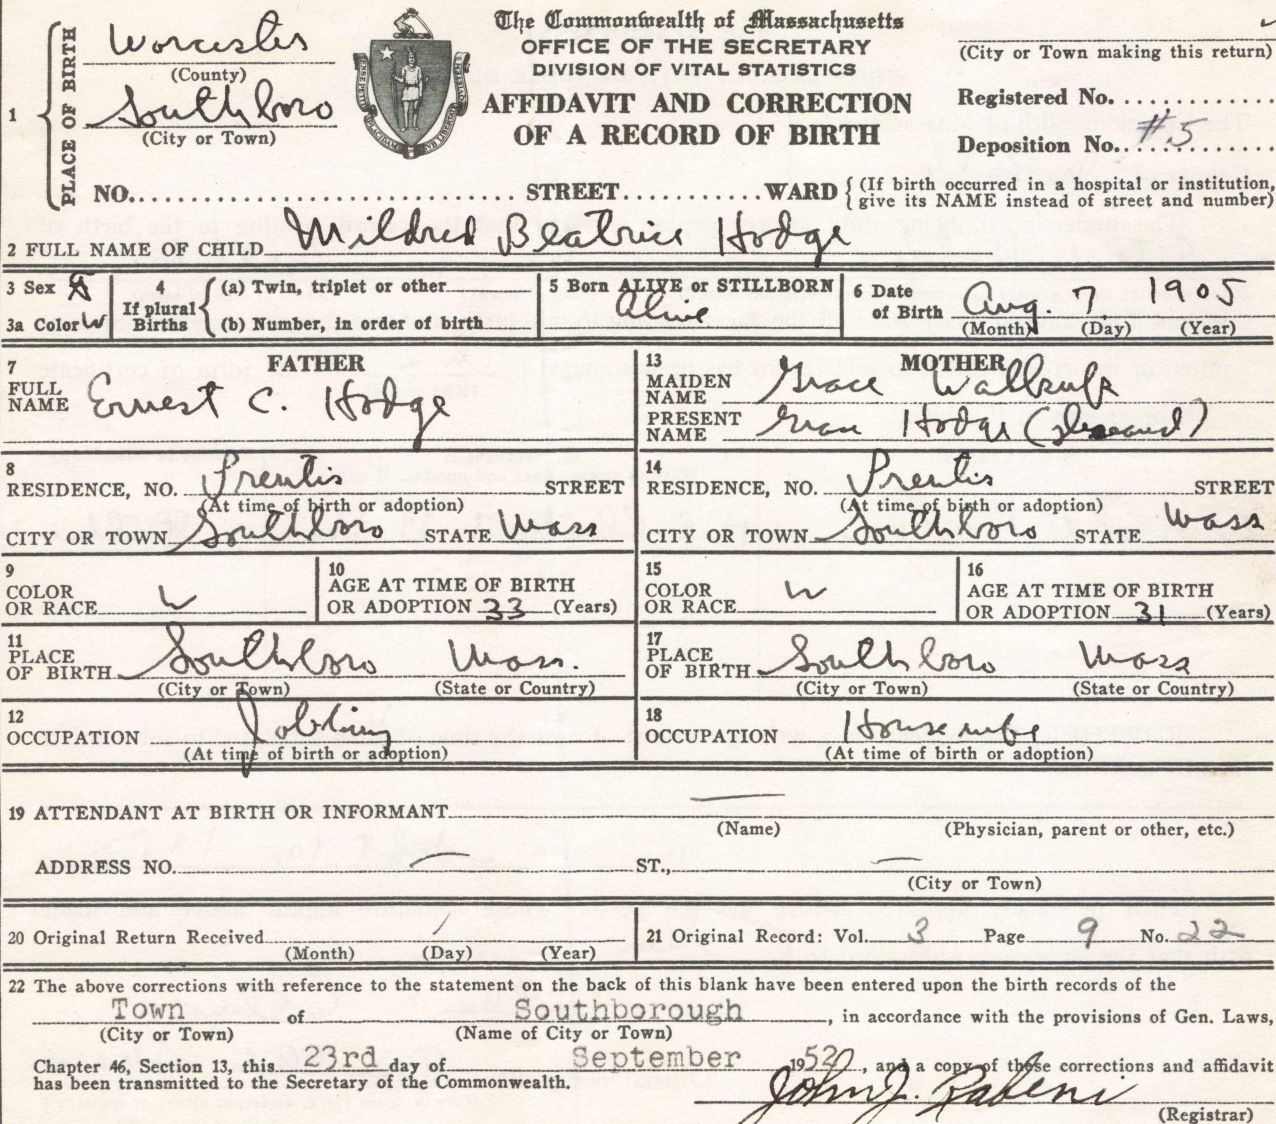 The Commonwealth of Massachusetts
OFFICE OF THE SECRETARY
DIVISION OF VITAL STATISTICS
AFFIDAVIT AND CORRECTION
OF A RECORD OF BIRTH
(City or Town making this return)
Registered No.
Deposition No. #5
1 PLACE OF BIRTH
Worcester
(County)
Southboro
(City or Town)
NO. STREET WARD { (If birth occurred in a hospital or institution, give its NAME instead of street and number)
2 FULL NAME OF CHILD Mildred Beatrice Hodge
3 Sex
3a Color W
4 If plural Births
(a) Twin, triplet or other
(b) Number, in order of birth
5 Born ALIVE or STILLBORN
Alive
6 Date of Birth Aug. 7, 1905
(Month) (Day) (Year)
FATHER
7 FULL NAME Ernest C. Hodge
8 RESIDENCE, NO. Prentis STREET
(At time of birth or adoption)
CITY OR TOWN Southboro STATE Mass
9 COLOR OR RACE W
10 AGE AT TIME OF BIRTH OR ADOPTION 33 (Years)
11 PLACE OF BIRTH Southboro Mass.
(City or Town) (State or Country)
12 OCCUPATION Jobbing
(At time of birth or adoption)
MOTHER
13 MAIDEN NAME Grace
PRESENT NAME Grace Hodge (deceased)
14 RESIDENCE, NO. Prentis STREET
(At time of birth or adoption)
CITY OR TOWN Southboro STATE Mass
15 COLOR OR RACE W
16 AGE AT TIME OF BIRTH OR ADOPTION 31 (Years)
17 PLACE OF BIRTH Southboro Mass
(City or Town) (State or Country)
18 OCCUPATION Housewife
(At time of birth or adoption)
19 ATTENDANT AT BIRTH OR INFORMANT —
(Name) (Physician, parent or other, etc.)
ADDRESS NO. — ST., —
(City or Town)
20 Original Return Received /
(Month) (Day) (Year)
21 Original Record: Vol. 3 Page 9 No. 22
22 The above corrections with reference to the statement on the back of this blank have been entered upon the birth records of the
Town of Southborough, in accordance with the provisions of Gen. Laws,
(City or Town) (Name of City or Town)
Chapter 46, Section 13, this 23rd day of September 1952, and a copy of these corrections and affidavit
has been transmitted to the Secretary of the Commonwealth.
John J. Rabeni
(Registrar)